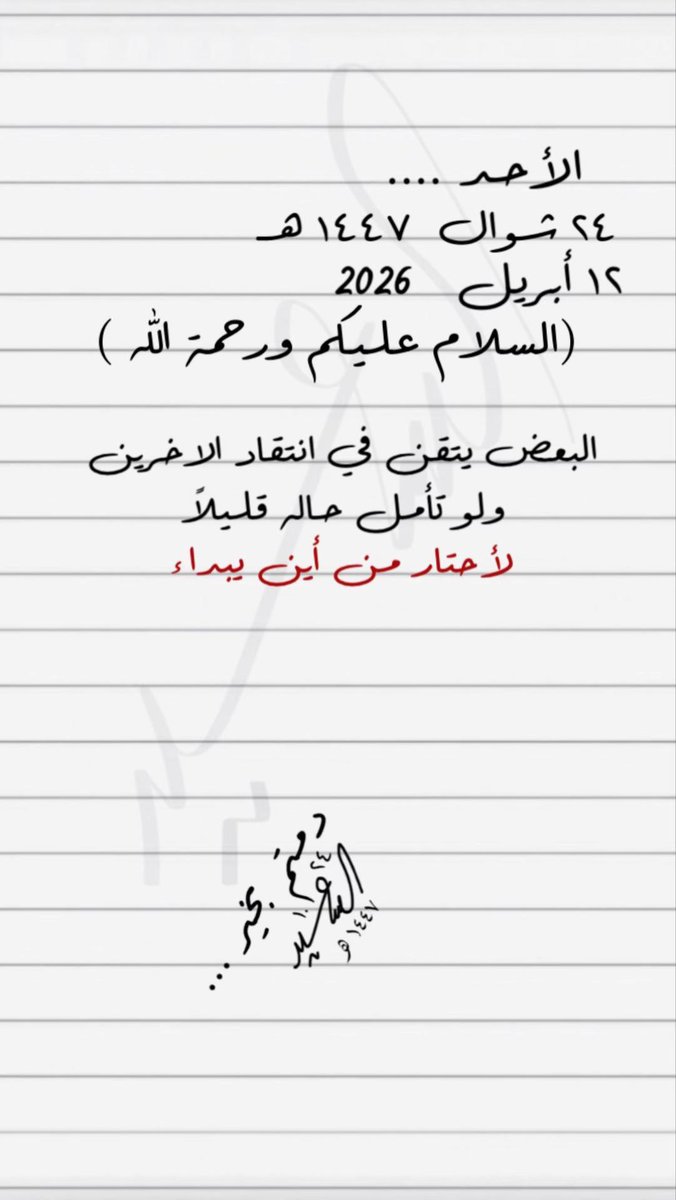 الأحد ....
٢٤ شوال ١٤٤٧ هـ
١٢ أبريل 2026
(السلام عليكم ورحمة الله )
البعض يتقن في انتقاد الاخرين
ولو تأمل حاله قليلاً
لأحتار من أين يبداء
دمتم بخير ...
٢٤
١٠
١٤٤٧ هـ